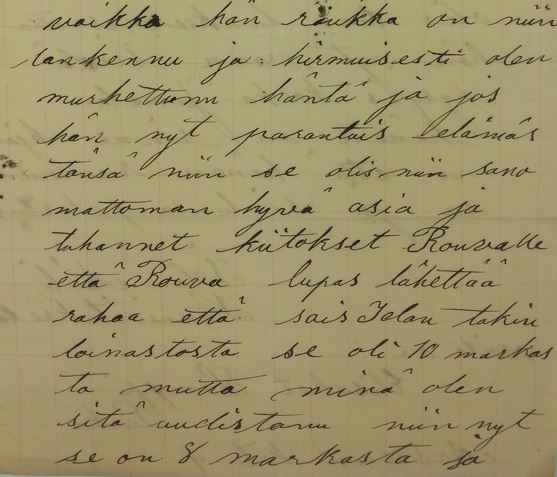 vaikka hän raukka on niin
lankennu ja hirmuisesti olen
murhettunu häntä ja jos
hän nyt parantais elämäs
tänsä niin se olis niin sano
mattoman hyvä asia ja
tuhannet kiitokset Rouvalle
että Rouva lupas lähettää
rahaa että sais Idan takin
loinastosta se oli 10 markas
ta mutta minä olen
sitä uudistanu niin nyt
se on 8 markasta ja